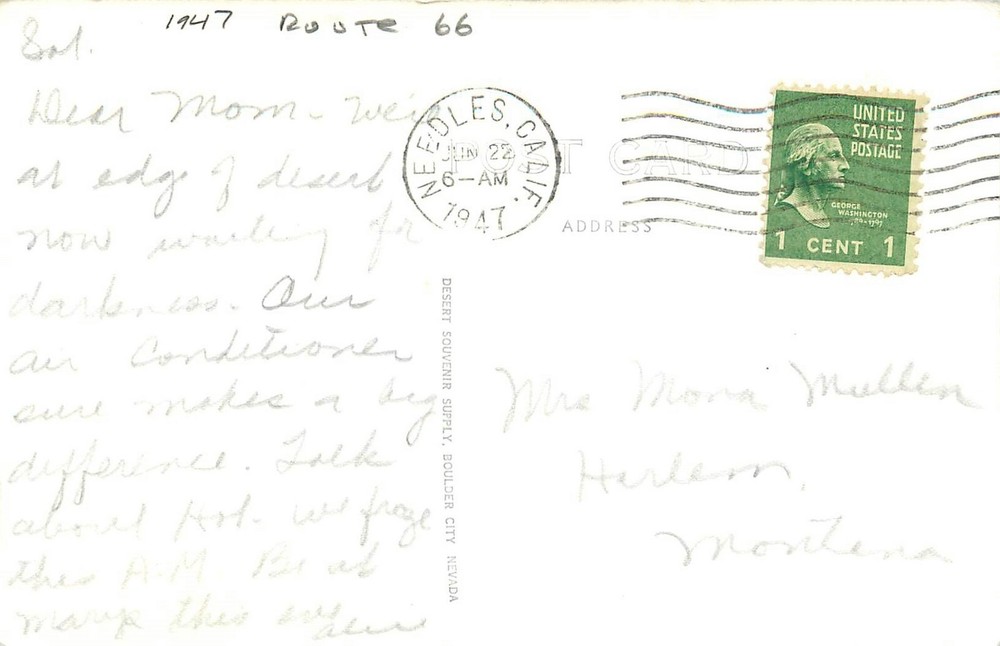 1947 Route 66
Sat.
Dear Mom - We're
at edge of desert
now waiting for
darkness. Our
air conditioner
sure makes a big
difference. Talk
about Hot. We froze
this A.M. Be at
Marys this eve
NEEDLES, CALIF.
JUN 22
6-AM
1947
POST CARD
ADDRESS
UNITED
STATES
POSTAGE
GEORGE
WASHINGTON
1789-1797
1 CENT 1
DESERT SOUVENIR SUPPLY, BOULDER CITY, NEVADA
Mrs Mona Mullen
Harlem,
Montana